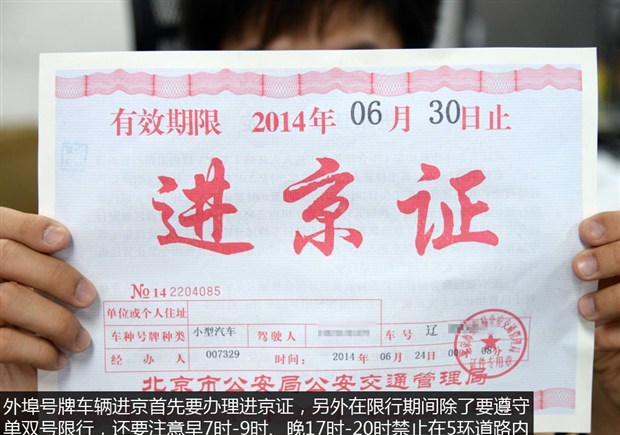 有效期限 2014年 06月 30日止
进京证
№ 14 2204085
单位或个人住址
车种号牌种类 小型汽车 驾驶人 车号 辽
经办人 007329 时间: 2014年 06月 24日 08分
北京市公安局公安交通管理局
外埠号牌车辆进京首先要办理进京证，另外在限行期间除了要遵守
单双号限行，还要注意早7时-9时、晚17时-20时禁止在5环道路内